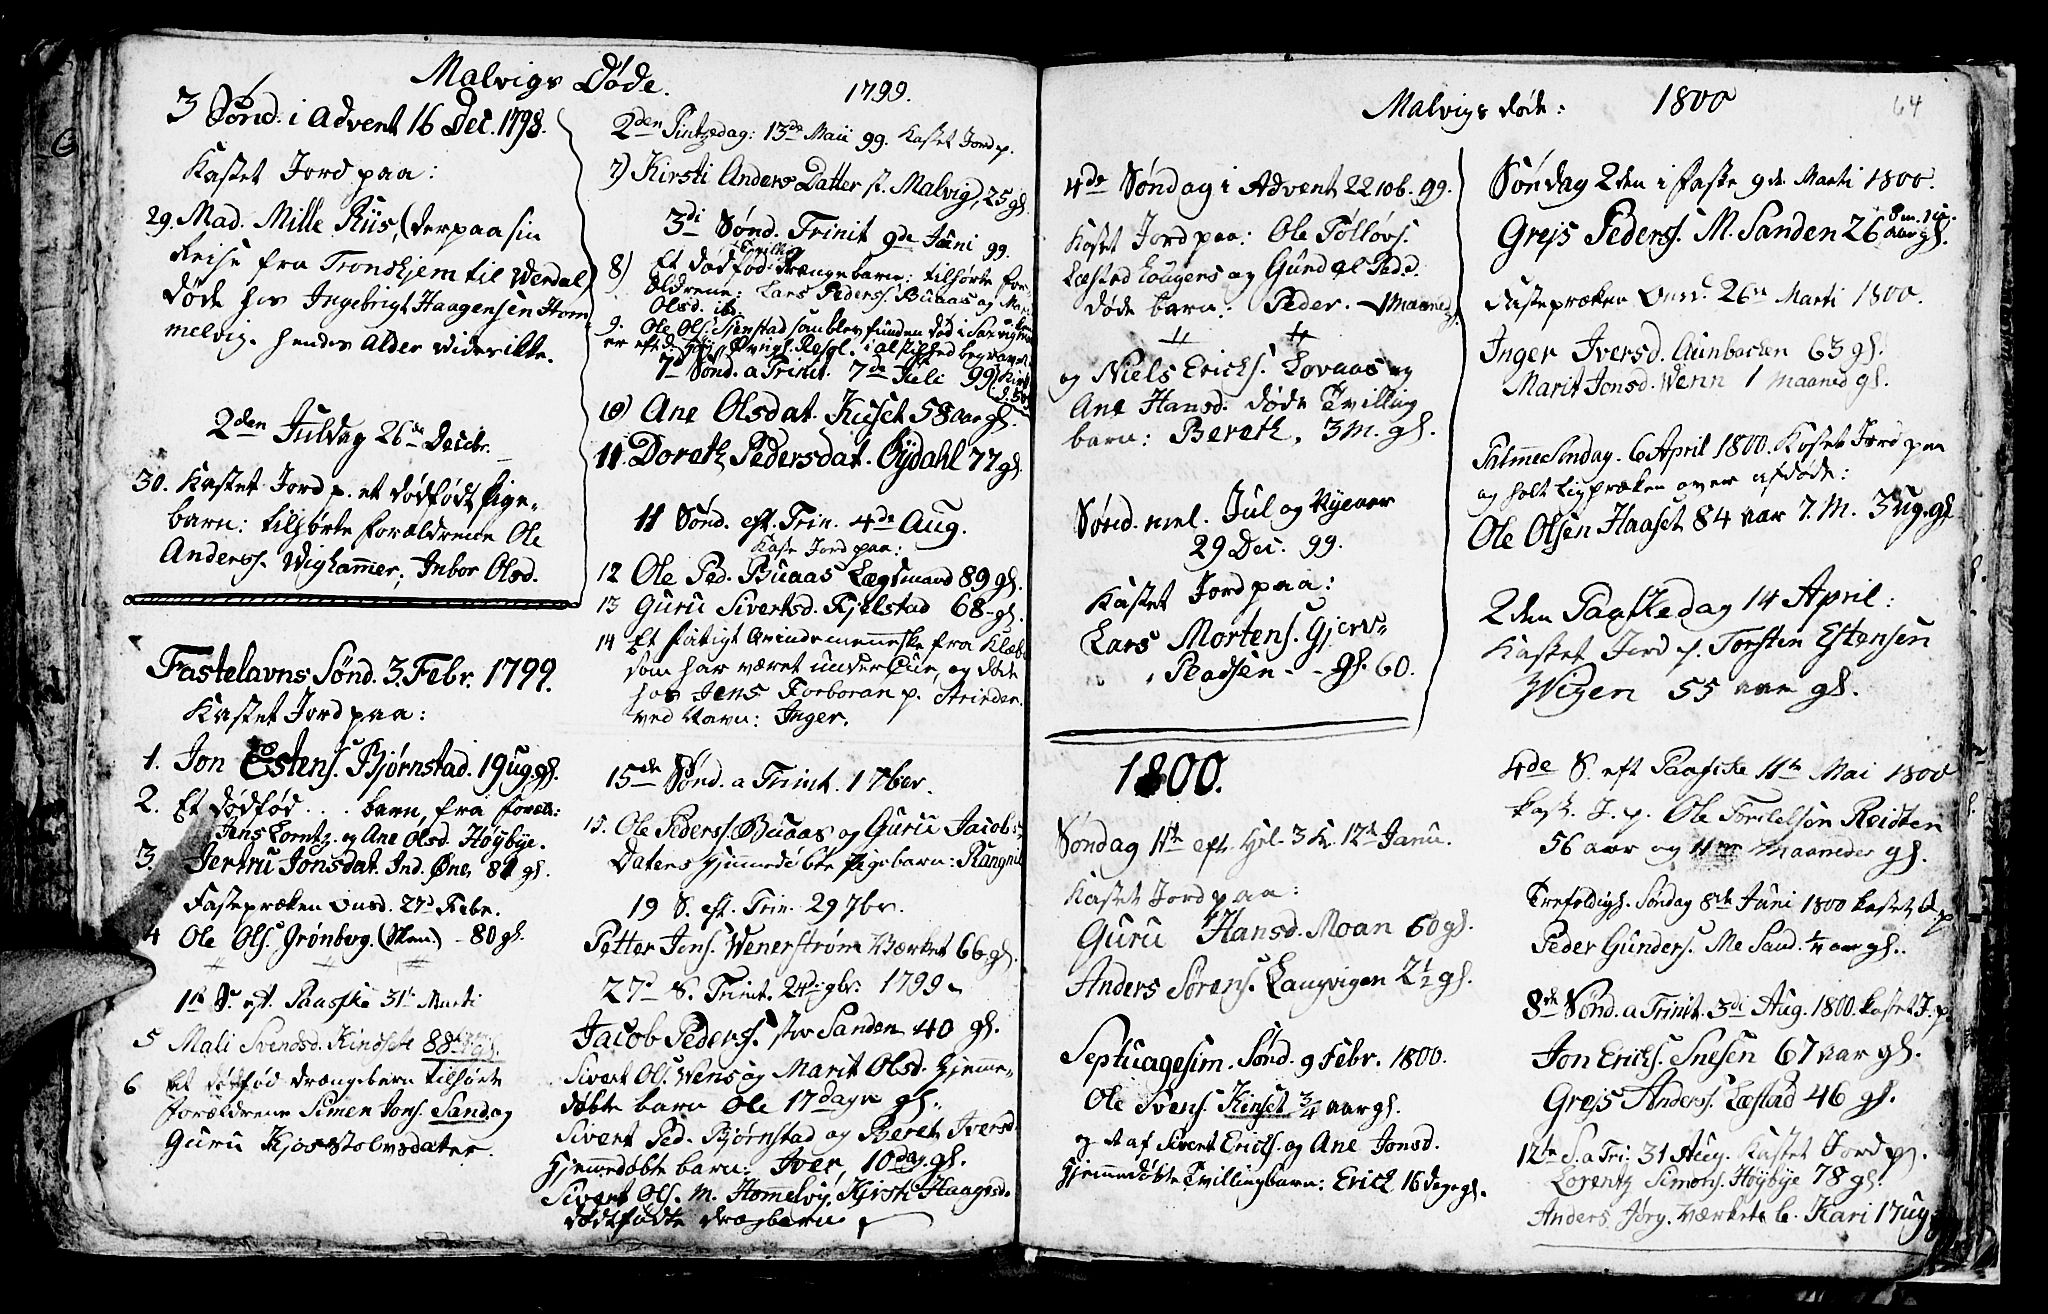 Malvigs Døde.
3 Sønd. i Advent 16 Dec. 1798.
Kastet Jord paa:
29. Mad. Mille Riis, (der paa sin
Reise fra Tronhjem til Werdal)
døde hos Ingebrigt Haagensen Hom
melvig. hendes Alder vides ikke.
2den Juldag 26de Decbr.
30. Kastet Jord p. et dødfødt Pige-
barn: tilhørte forældrene Ole
Anderss. Wighammer, Inbor Olsd.
Fastelavns Sønd. 3. Febr. 1799.
Kastet Jord paa:
1. Jon Estens. Bjørnstad. 19 ug. gl.
2. Et dødfød . . . barn, fra foræl:
Jens Lorntz. og Ane Olsd. Høybye.
3. Jertru Jonsdat. Ind. Øne, 81 gl.
Fastepræken Onsd. 27d Febr.
4 Ole Ols. Grønberg. - 80 gl.
1te S. eft. Paaske 31te Marti
5 Mali Svendsd. Kindset 88 gl.
6 Et dødfød drængebarn tilhørte
forældrene Simen Jons. Sand og
Guru Kjostolvsdatter.
1799.
2den Pintzedag: 13de Maii 99. Kastet Jord p.
7) Kirsti Anders Datter st. Malvig, 25 gl.
3di Sønd. Trinit 9de Juni 99.
8) Et dødfød Tvilling drængebarn: tilhørte for
ældrene: Lars Pederss. Buaas og
Olsd. ib.
9. Ole Ols. som blev funden død i
er efter Resol. i al stilhed begravet
7d Sønd. a Trinit. 7de Juli 99
10) Ane Olsdat. Kuset 58 aar gl.
11. Doreth Pedersdat. Øydahl 77 gl.
11 Sønd. eft. Trin. 4de Aug.
Kast Jord paa:
12 Ole Ped. Buaas Lægsmand 89 gl.
13 Guru Sivertsd. Fjelstad 68- gl.
14 Et fatigt Qvindemenneske fra Klæb
som har været under Cur, og døde
hos Jens Forboran p. Strinden
ved Navn: Inger.
15de Sønd. a Trinit. 1 7ber.
15. Ole Peders. Buaas og Guru Jacobs
Daters hjemmedøbte Pigebarn: Rangni
19 S. eft. Trin. 29 7br.
Petter Jons. Wenerstrøm Værket 66. gl.
27d S. Trinit. 24de 9br: 1799
Jacob Peders. stor Sanden 40 gl.
Sivert Ols. Wens og Marit Olsd. Hjemme-
døbte barn Ole 17 dage gl.
Sivert Ped. Bjørnstad og Beret Iversd.
Hjemmedøbte barn: Iver, 10 dag. gl.
Sivert Ols. M. Hommelvig, Kirsti Haagsd.
dødfødte drægbarn
Malvigs døde: 1800
64
4de Søndag i Advent 22 10b. 99.
Kastet Jord paa: Ole Tolløvs.
Læstad Lougens og Gundel Ped.d.
døde barn: Peder. - 1 Maaned.
og Niels Ericks. Lovaas og
Ane Hansd. døde Tvilling
barn: Bereth, 3 M. gl.
Sønd. mel. Jul og Nyeaar
29 Dec. 99.
Kastet Jord paa:
Lars Mortens. Gjevs-
Pladsen - - gl. 60.
1800.
Søndag 1ste eft. Hel. 3 K. 12te Janu.
Kastet Jord paa:
Guru Hansd. Moan 60 gl.
Anders Sørens. Langvigen 2½ gl.
Septuagesim. Sønd. 9 Febr. 1800.
Ole Svens. Kinset ¾ aar gl.
og et af Sivert Ericks. og Ane Jonsd.
Hjemmedøbte Tvillingbarn: Erick 16 dage gl.
Søndag 2den i Faste 9de Marti 1800.
Grejs Peders. M. Sanden 26 aar gl.
Fastepræken Onsd. 26de Marti 1800.
Inger Iversd. Aunbacken 63 gl.
Marit Jonsd. Wenn 1 maaned gl.
Palme Søndag. 6 April 1800. Kastet Jord paa
og holt Ligpræken over afdøde:
Ole Olsen Haaset 84 aar 7. M. 3 ug. gl
2den Paaskedag 14 April:
Kastet Jord p. Torsten Estensen
Wigen 55 aar gl.
4de S. eft Paaske 11te Mai 1800
kast. J. p. Ole Forlelssøn Reidten
56 aar og 11 Maaneder gl.
Trefoldigh. Søndag 8de Juni 1800 kastet J. p
Peder Gunders. Me Sand. ½ aar gl.
8de Sønd. a Trinit. 3di Aug. 1800. kastet J. p
Jon Ericks. Snesen 67 aar gl.
Grejs Anders. Læstad 46 gl.
12te S. a Tri. 31 Aug. Kastet Jord p.
Lorentz Simons. Høybye 78 gl.
Anders Jørg. Værkets b. Kari 17 ug